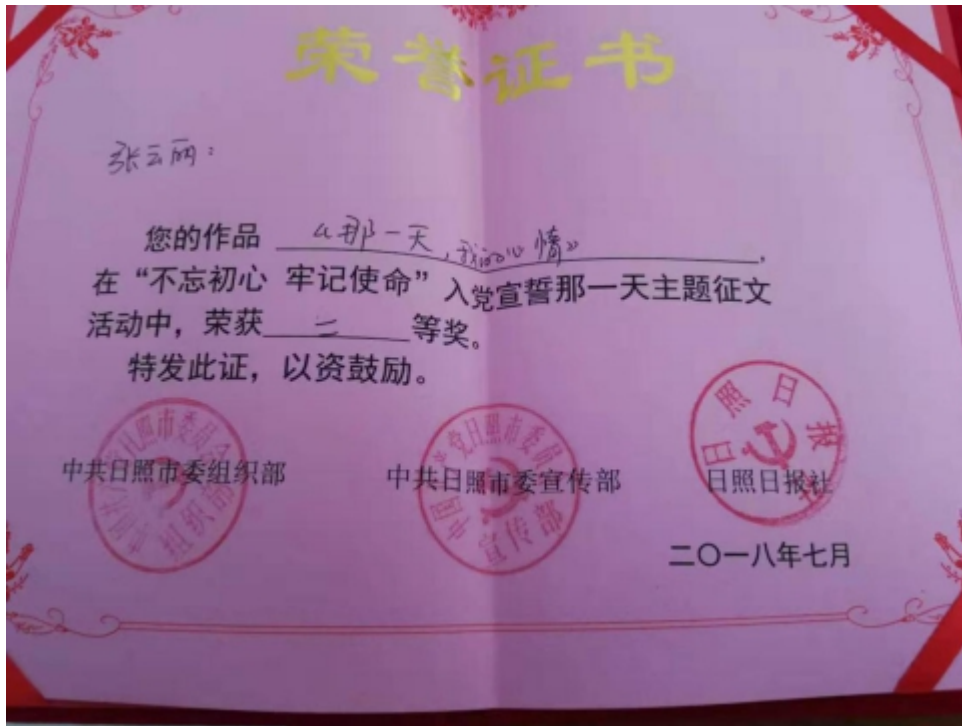 荣誉证书
张云丽：
您的作品 《那一天,我的心情》，
在“不忘初心 牢记使命”入党宣誓那一天主题征文
活动中，荣获 二 等奖。
特发此证，以资鼓励。
中共日照市委组织部 中共日照市委宣传部 日照日报社
中国共产党日照市委员会
组织部
中国共产党日照市委员会
宣传部
日照日报社
二〇一八年七月